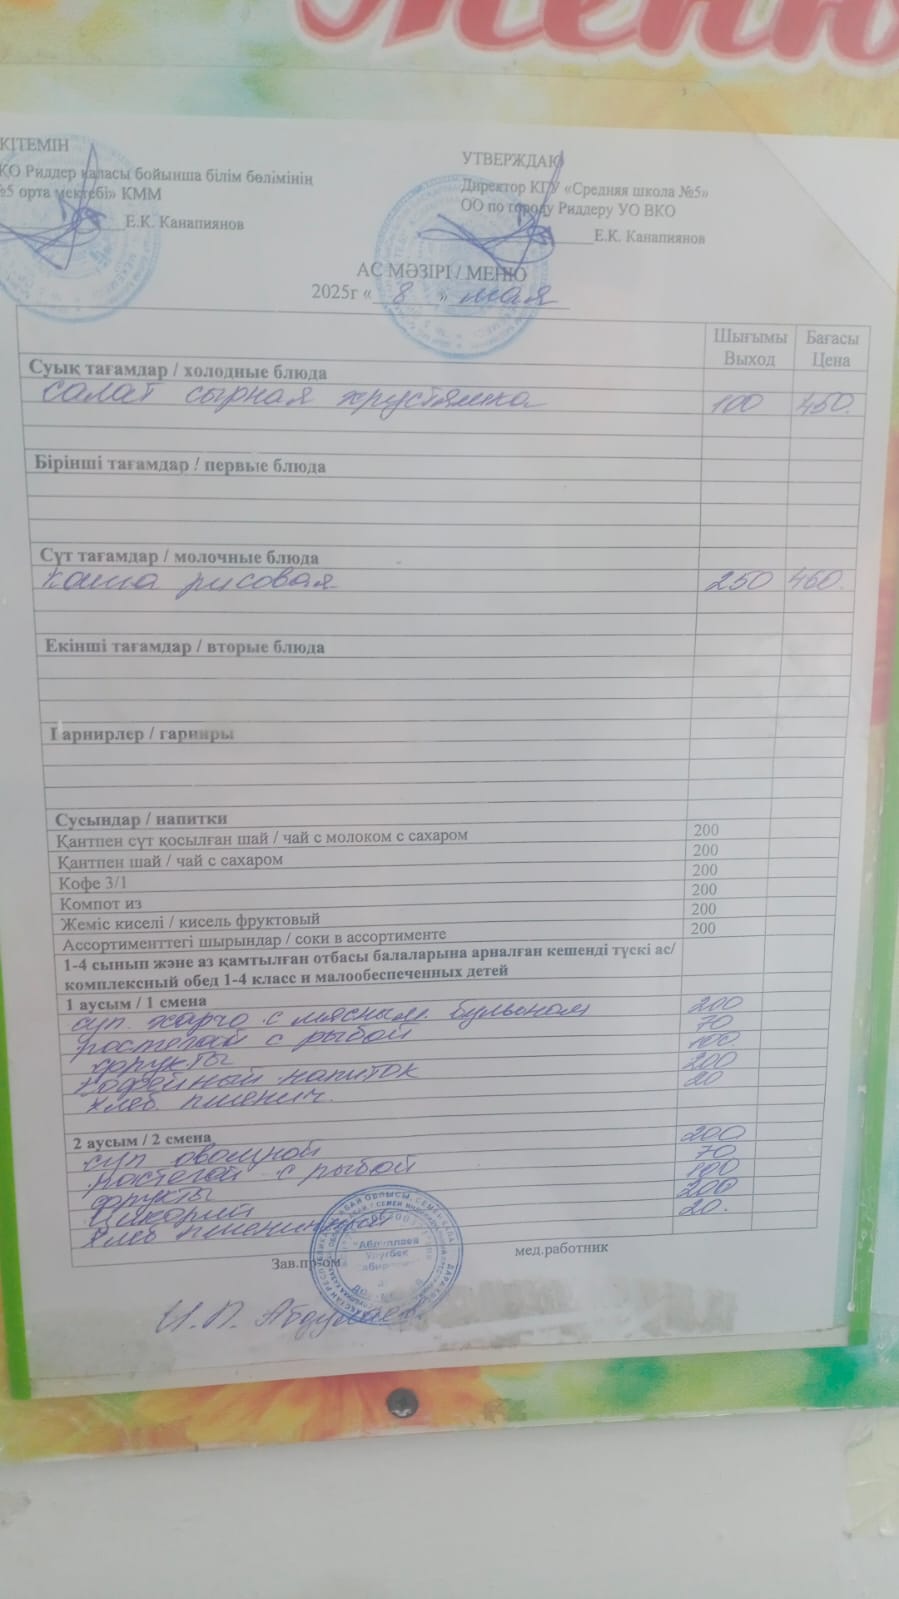 Меню
КІТЕМІН
ҚО Риддер қаласы бойынша білім бөлімінің
№5 орта мектебі» КММ
Е.К. Канапиянов
УТВЕРЖДАЮ
Директор КГУ «Средняя школа №5»
ОО по городу Риддеру УО ВКО
Е.К. Канапиянов
АС МӘЗІРІ / МЕНЮ
2025г « 8 » мая
Шығымы Бағасы
Выход Цена
Суық тағамдар / холодные блюда
салат сырная хрустяшка 100 450.
Бірінші тағамдар / первые блюда
Сүт тағамдар / молочные блюда
каша рисовая 250 460.
Екінші тағамдар / вторые блюда
Гарнирлер / гарниры
Сусындар / напитки
Қантпен сүт қосылған шай / чай с молоком с сахаром 200
Қантпен шай / чай с сахаром 200
Кофе 3/1 200
Компот из 200
Жеміс киселі / кисель фруктовый 200
Ассортименттегі шырындар / соки в ассортименте 200
1-4 сынып және аз қамтылған отбасы балаларына арналған кешенді түскі ас/
комплексный обед 1-4 класс и малообеспеченных детей
1 аусым / 1 смена
суп. харчо с мясным. бульоном 200
растегай с рыбой 70
фрукты 100.
кофейный напиток 200
хлеб. пшенич. 20
2 аусым / 2 смена
суп овощной 200
растегай с рыбой 70
фрукты 100
цикорий 200
хлеб пшеничный 20.
Зав.пр-ом мед.работник
И.П. Абдуллаев